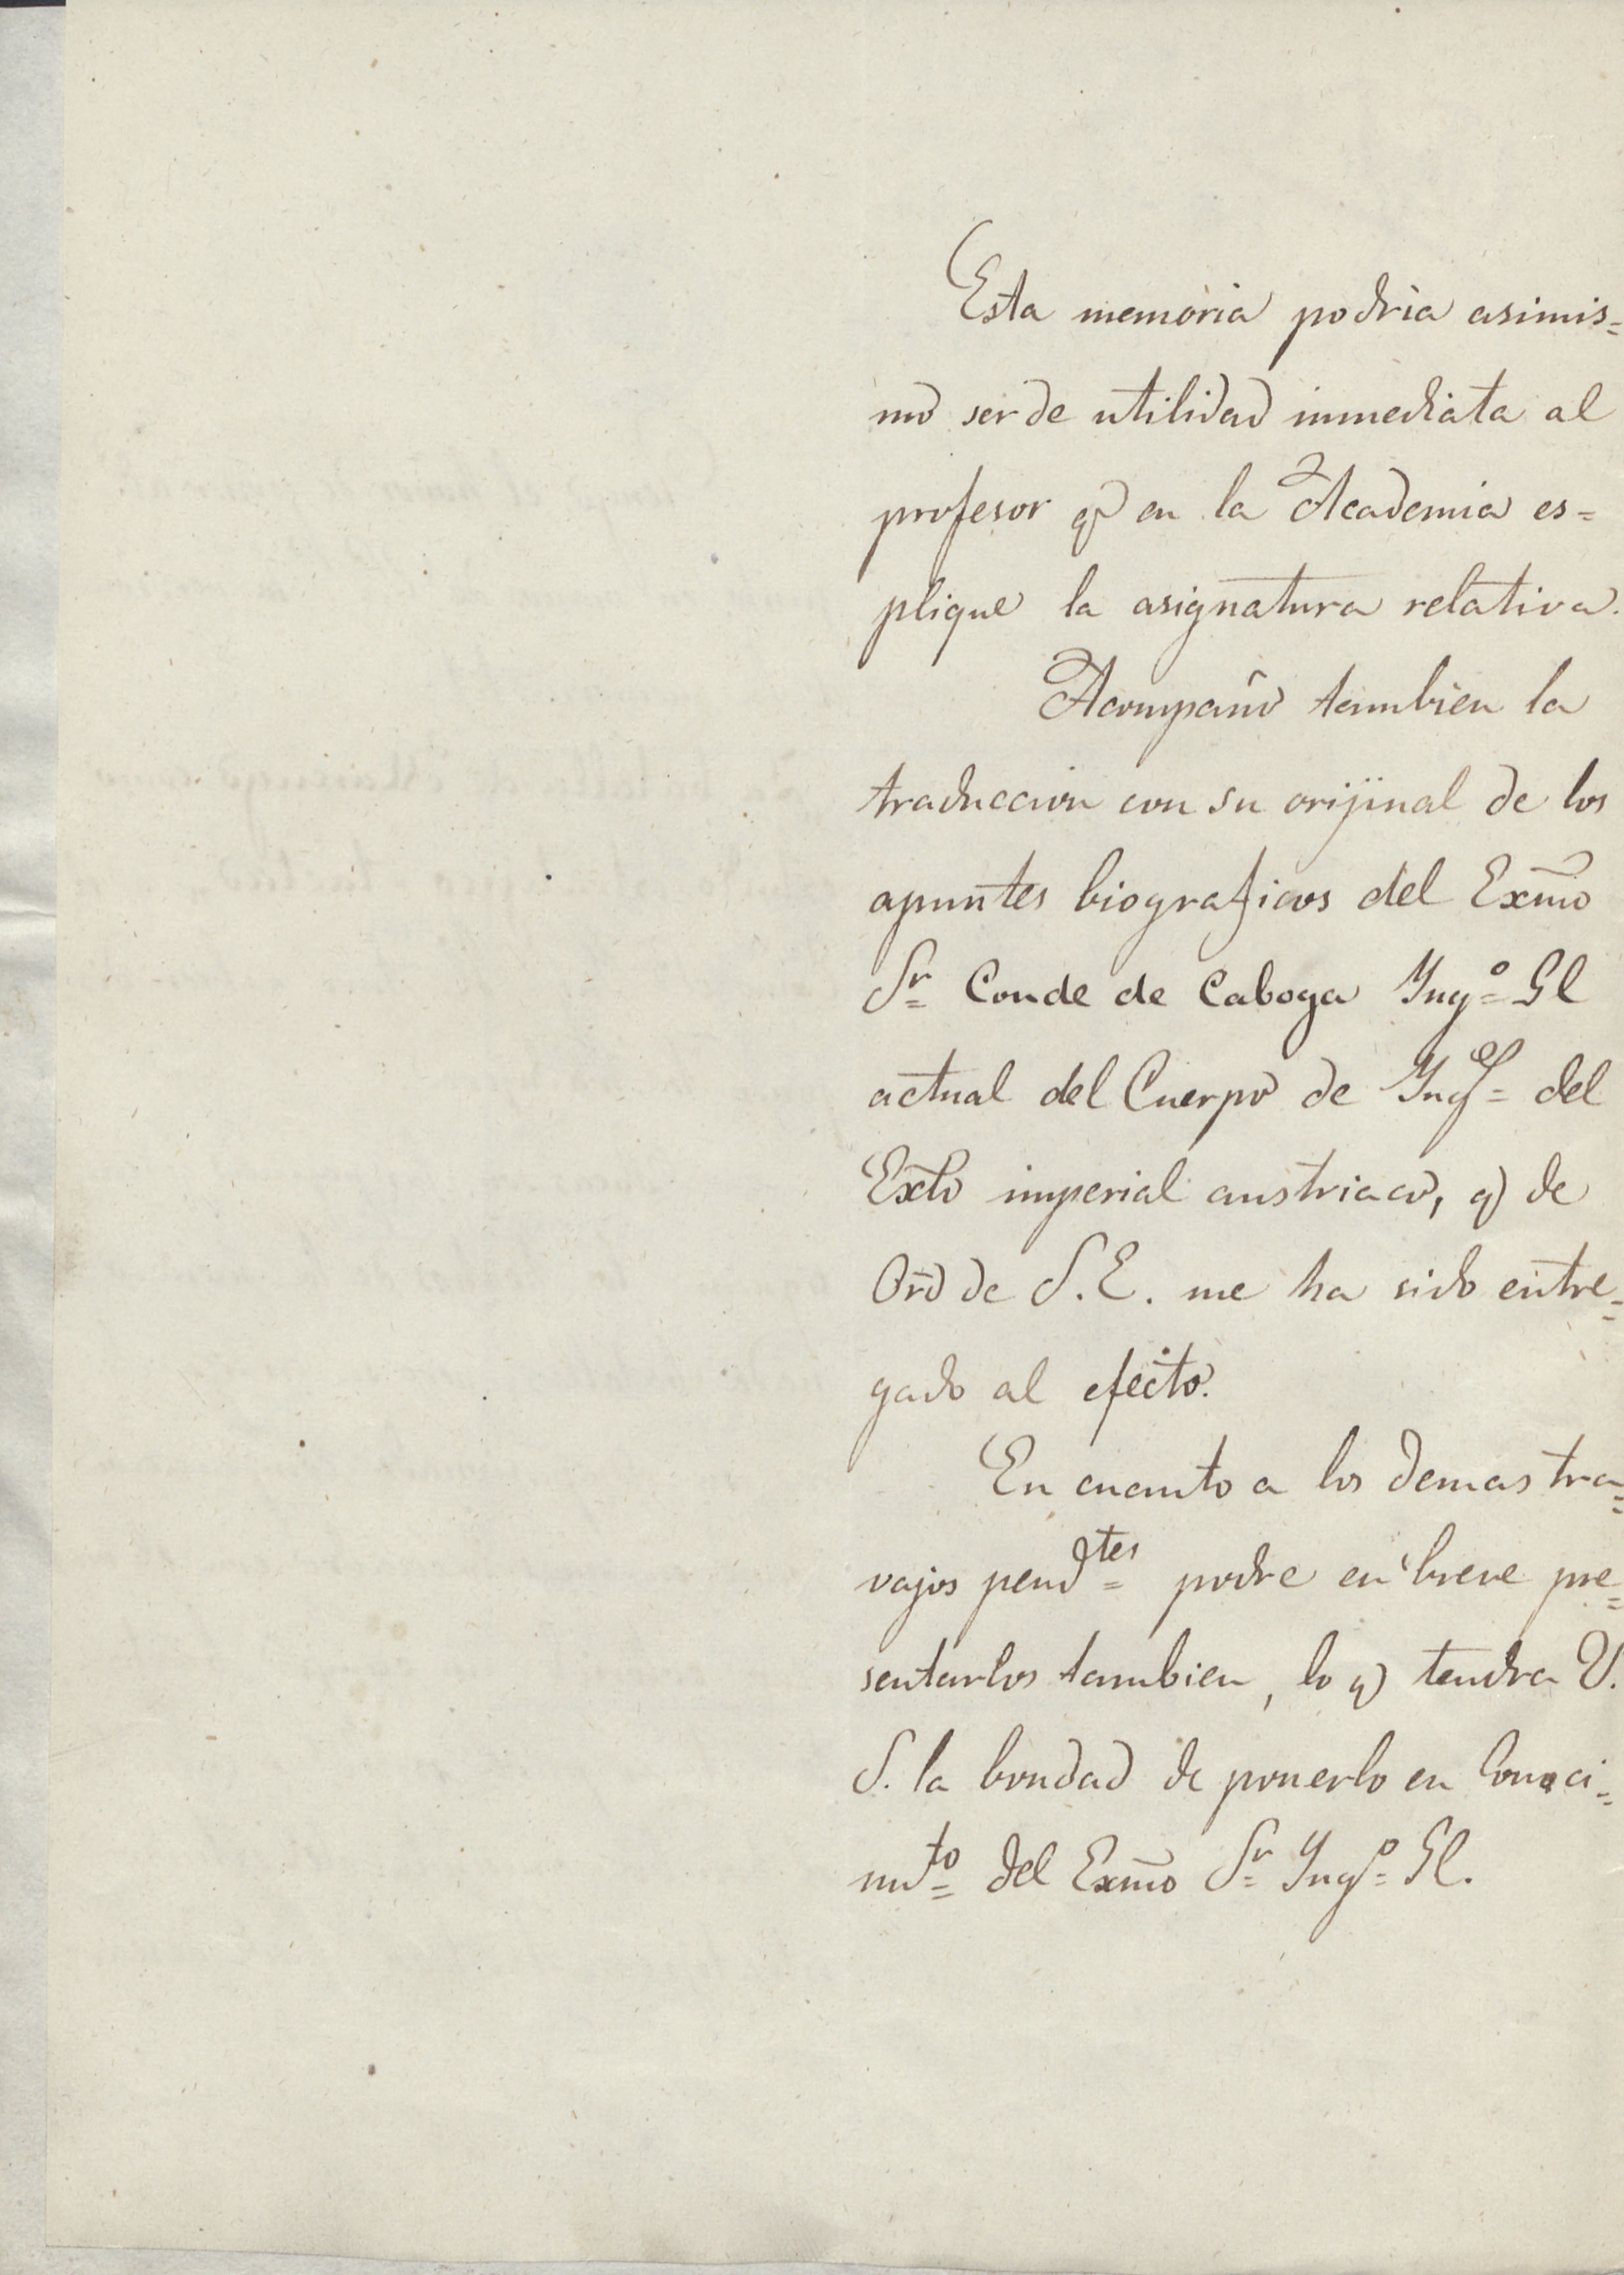 Esta memoria podria asimis=
mo ser de utilidad inmediata al
profesor q en la Academia es=
plique la asignatura relativa.
Acompaño tambien la
traduccion con su orijinal de los
apuntes biograficos del Exmo
Sr Conde de Caboga Ingo Gl
actual del Cuerpo de Inges del
Exto imperial austriaco, q de
Ord de S. E. me ha sido entre=
gado al efecto.
En cuanto a los demas tra=
vajos pendtes podre en breve pre=
sentarlos tambien, lo q tendra V.
S. la bondad de ponerlo en Conoci=
mto del Exmo Sr Ingo Gl.